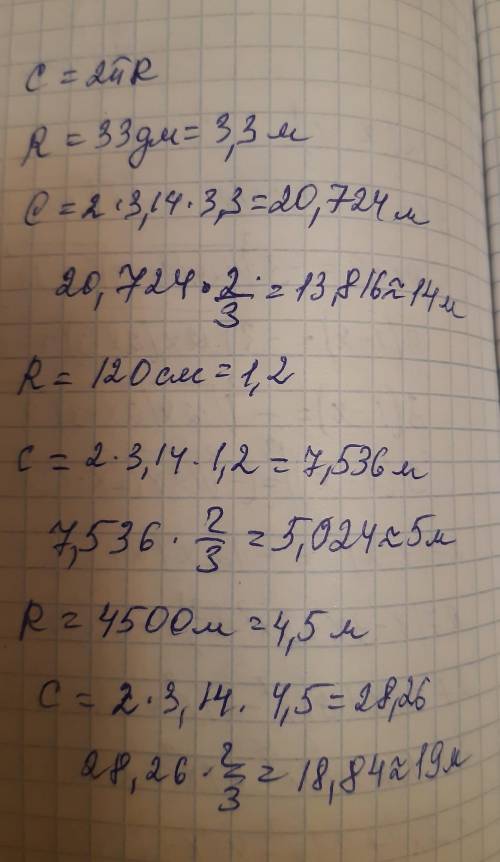 C = 2πR
R = 33дм = 3,3 м
C = 2·3,14·3,3 = 20,724 м
20,724·2/3 = 13,816 ≈ 14 м
R = 120 см = 1,2
C = 2·3,14·1,2 = 7,536 м
7,536·2/3 = 5,024 ≈ 5 м
R = 4500м = 4,5 м
C = 2·3,14·4,5 = 28,26
28,26·2/3 = 18,84 ≈ 19 м